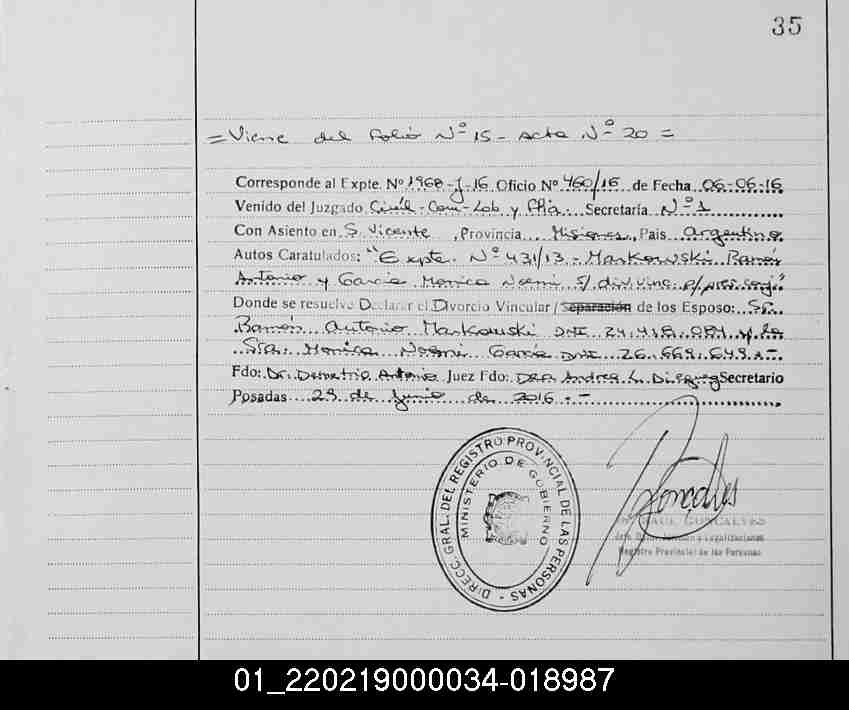 35
= Viene del Folio Nº 15 - Acta Nº 20 =
Corresponde al Expte. Nº 1968-J-16 Oficio Nº 460/16 de Fecha 06-06-16
Venido del Juzgado Civil-Com-Lab y Flia. Secretaría Nº 1
Con Asiento en S. Vicente, Provincia Misiones, Pais Argentina
Autos Caratulados: "Expte. Nº 431/13 - Markowski Ramón
Antonio y Garcia Monica Noemi S/ div. vinc. p/ pres. conj."
Donde se resuelve Declarar el Divorcio Vincular / Separación de los Esposo: Sr.
Ramón Antonio Markowski DNI 24.418.084 y la
Sra. Monica Noemi Garcia DNI 26.669.649.-
Fdo: Dr. Demetrio Antonio Juez Fdo: Dra. Andrea L. Secretario
Posadas 29 de Junio de 2016.-
DIRECC. GRAL. DEL REGISTRO PROVINCIAL DE LAS PERSONAS -
MINISTERIO DE GOBIERNO
Goncalves
RAUL GONCALVES
Legalizaciones
Registro Provincial de las Personas
01_220219000034-018987